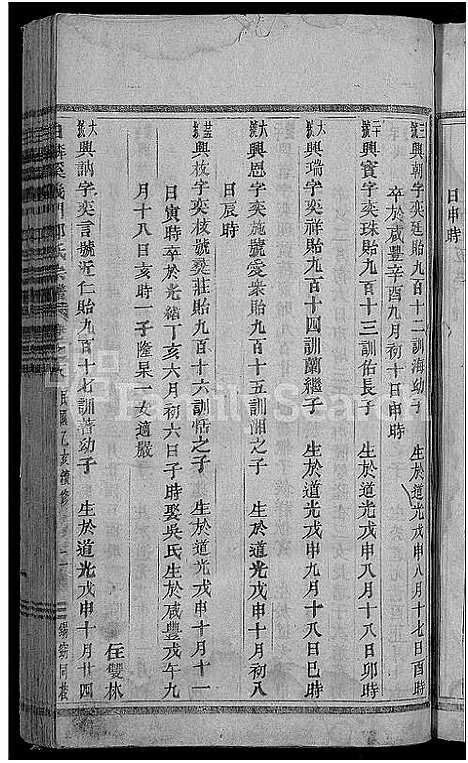 日申時
興朝字奕廷貽九百十二訓海幼子 生於道光戊申八月十七日酉時
卒於咸豐辛酉九月初十日申時
興寶字奕珠貽九百十三訓佑長子 生於道光戊申八月十八日卯時
興瑞字奕祥貽九百十四訓蘭繼子 生於道光戊申九月十八日巳時
興恩字奕施號愛衆貽九百十五訓湘之子 生於道光戊申十月初八
日辰時
興枚字奕枝號 莊貽九百十六訓恬之子 生於道光戊申十月十一
日寅時卒於光緒丁亥六月初六日子時娶吳氏生於咸豐戊午九
月十八日亥時一子隆杲一女適嚴
住雙林
興訥字奕言號近仁貽九百十七訓 幼子 生於道光戊申十月廿四